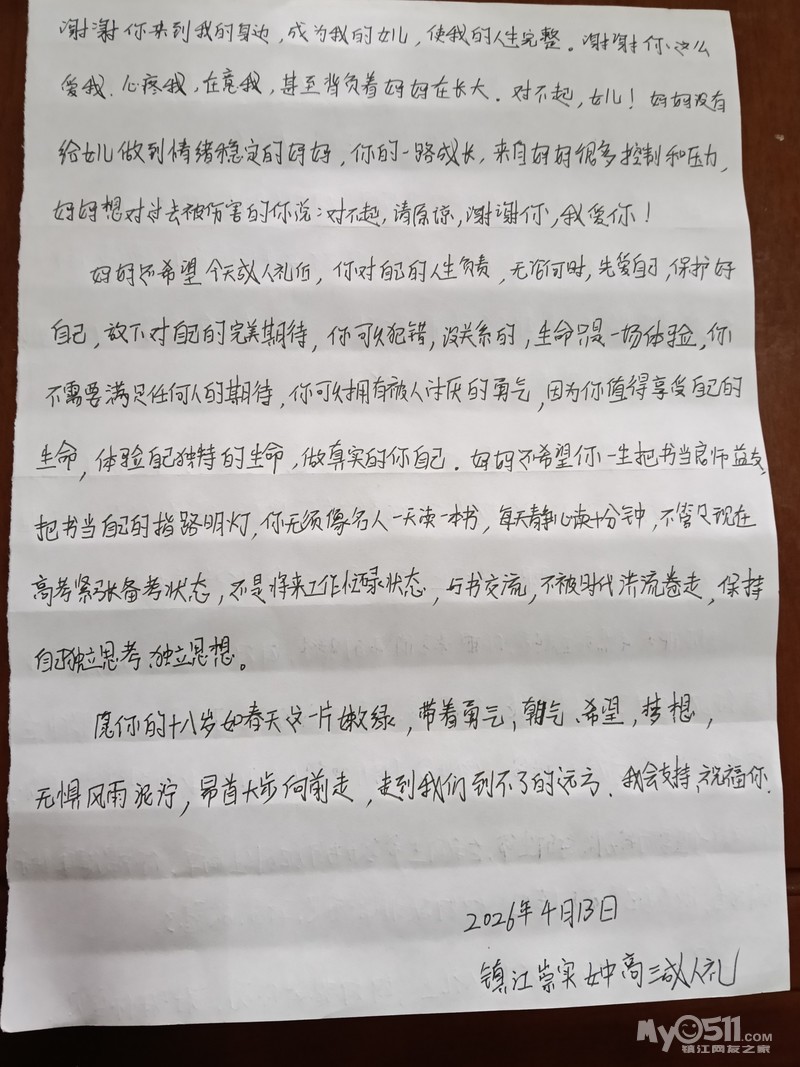 谢谢你来到我的身边，成为我的女儿，使我的人生完整。谢谢你这么
爱我、心疼我，在意我，甚至背负着妈妈在长大。对不起，女儿！妈妈没有
给女儿做到情绪稳定的妈妈，你的一路成长，来自妈妈很多控制和压力，
妈妈想对过去被伤害的你说：对不起，请原谅，谢谢你，我爱你！
妈妈还希望今天成人礼后，你对自己的人生负责，无论何时，先爱自己，保护好
自己，放下对自己的完美期待，你可以犯错，没关系的，生命只是一场体验，你
不需要满足任何人的期待，你可以拥有被人讨厌的勇气，因为你值得享受自己的
生命，体验自己独特的生命，做真实的你自己。妈妈还希望你一生把书当良师益友，
把书当自己的指路明灯，你无须像名人一天读一本书，每天静心读十分钟，不管是现在
高考紧张备考状态，还是将来工作忙碌状态，与书交流，不被时代洪流卷走，保持
自己独立思考、独立思想。
愿你的十八岁如春天这一片嫩绿，带着勇气、朝气、希望，梦想，
无惧风雨泥泞，昂首大步向前走，走到我们到不了的远方。我会支持、祝福你.
2026年4月13日
镇江崇实女中高三成人礼
My0511.com
镇江网友之家